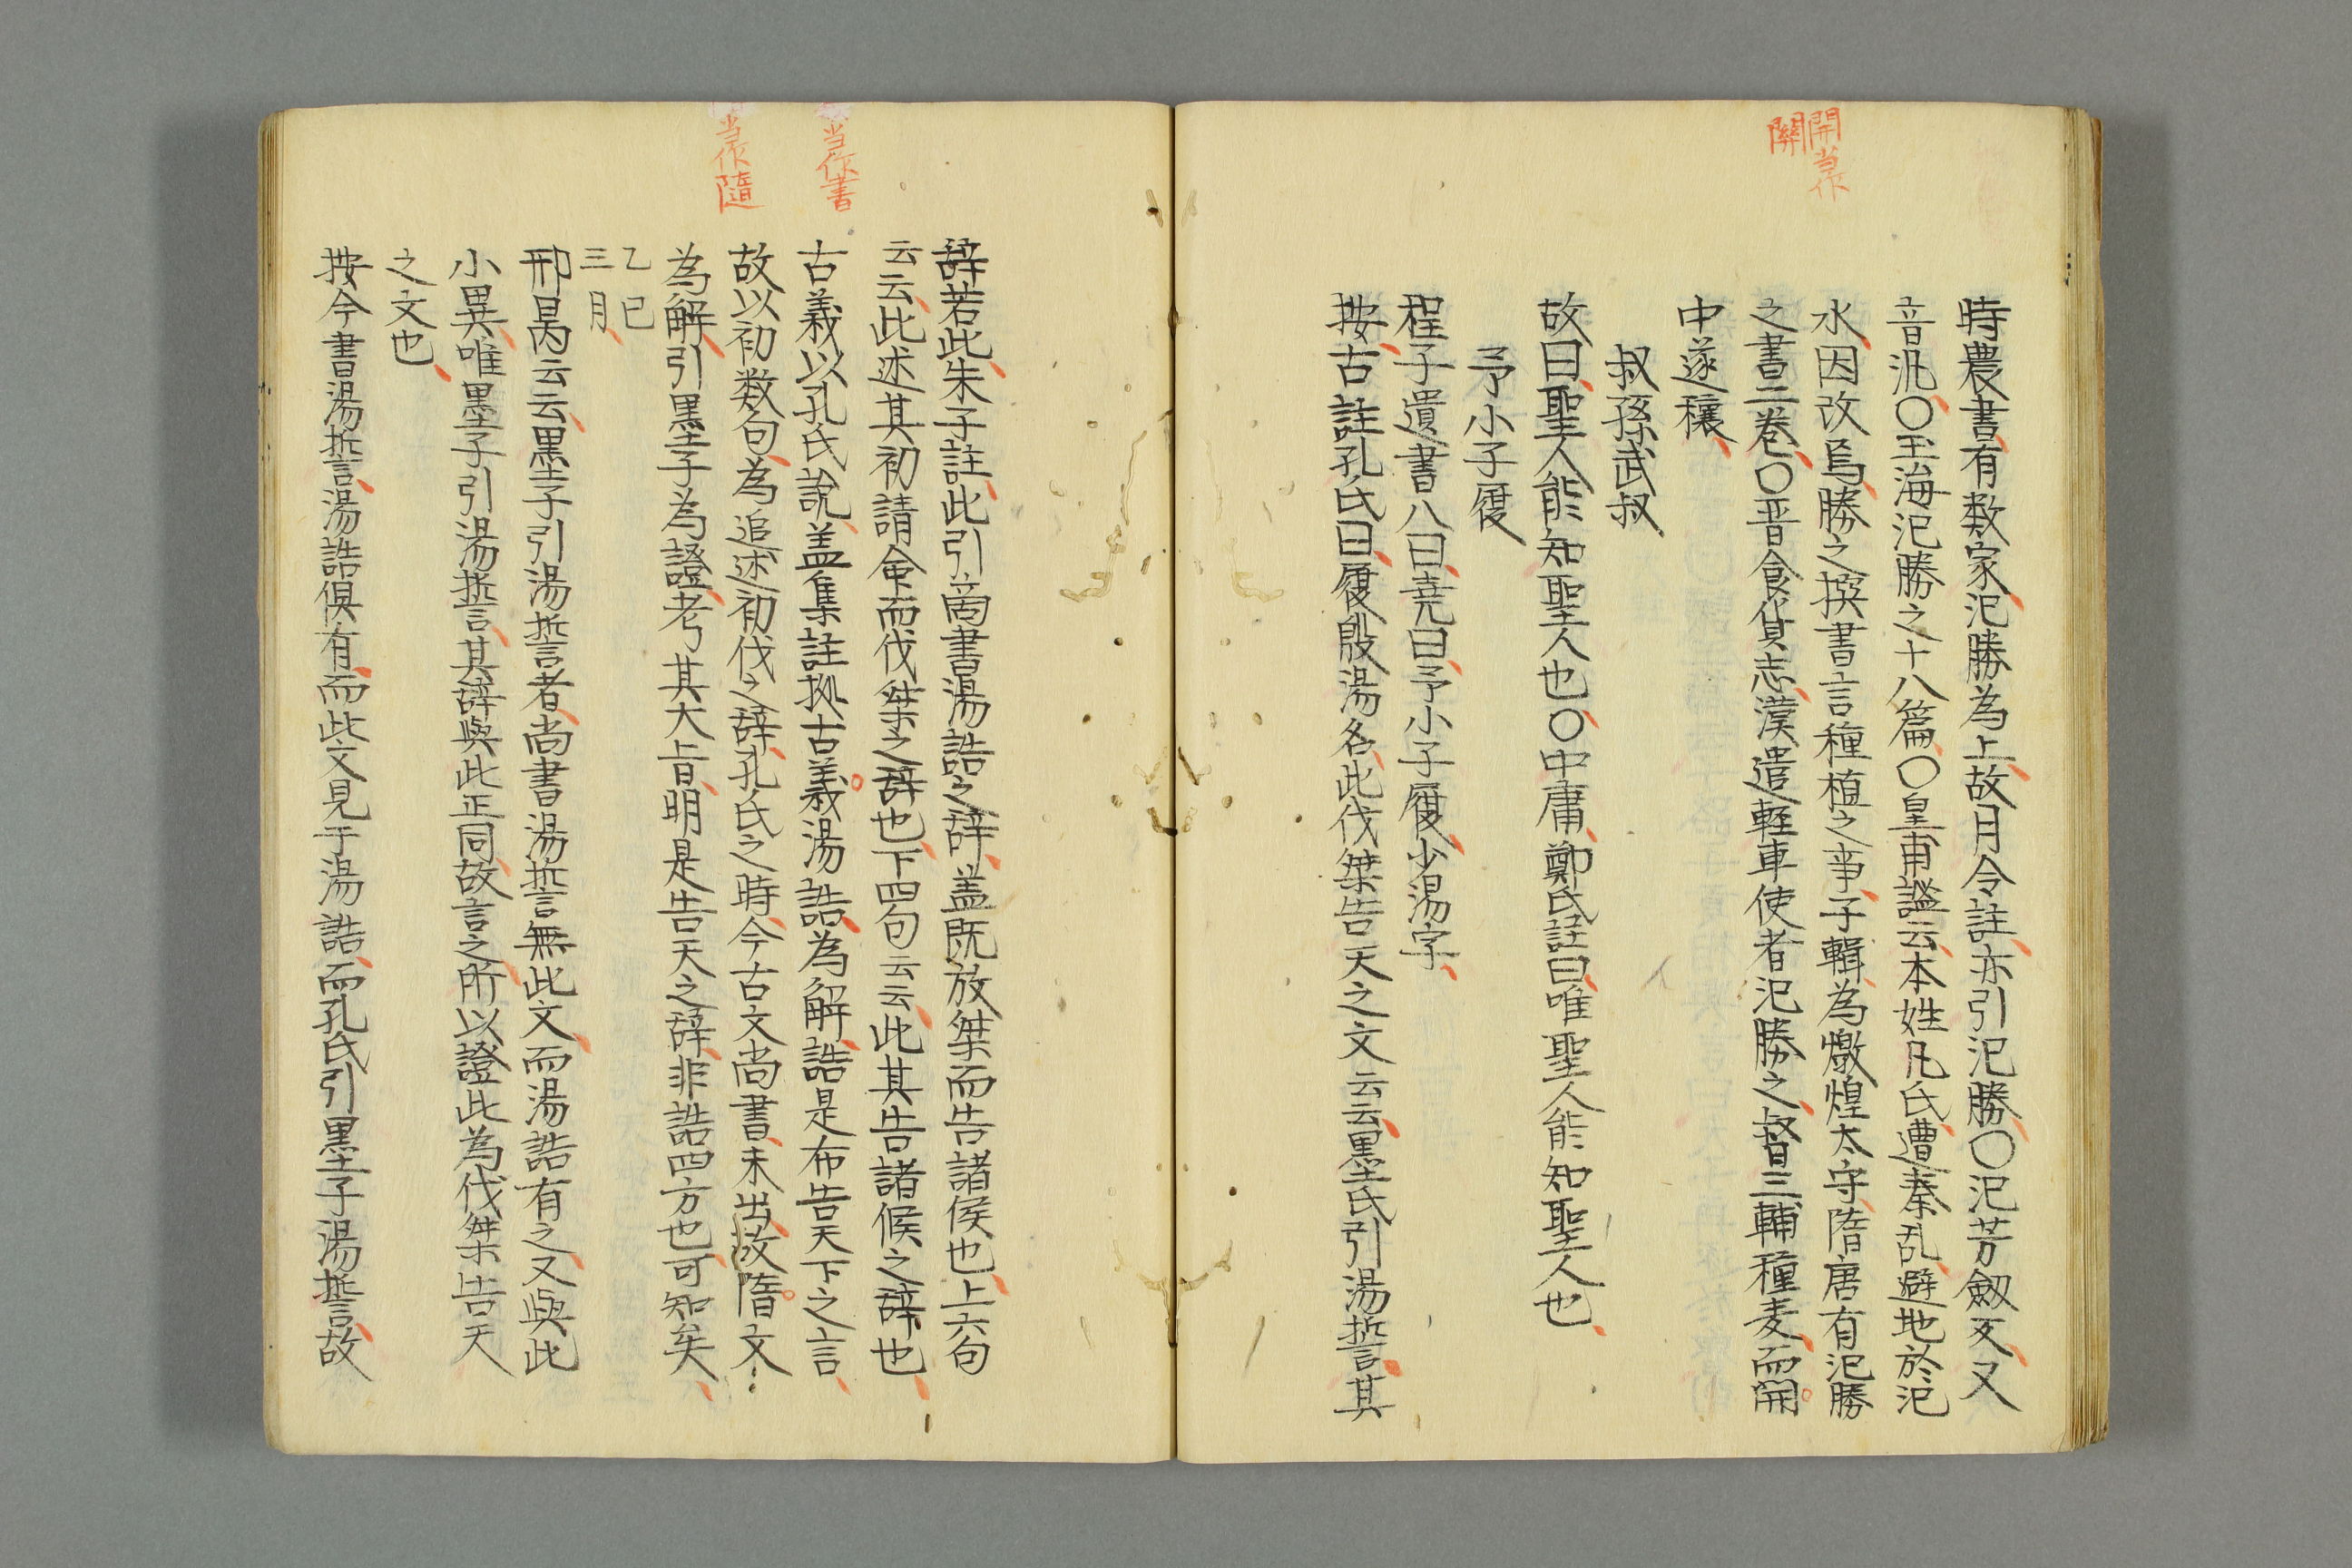 開当作
關
時農書有数家汜勝為上故月令註亦引汜勝〇汜芳劔叉又
音汎〇玉海汜勝之十八篇〇皇甫謐云本姓凡氏遭秦乱避地於汜
水因改焉勝之撰書言種植之事子輯為燉煌太守隋唐有汜勝
之書二卷〇晋食貨志漢遣軽車使者汜勝之督三輔種麦而開
中遂穰
叔孫武叔
故曰聖人能知聖人也〇中庸鄭氏註曰唯聖人能知聖人也
予小子履
程子遺書八曰堯曰予小子履少湯字
按古註孔氏曰履殷湯名此伐桀告天之文云云墨氏引湯誓其
当作書
当作隨
辞若此朱子註此引啇書湯誥之辞盖既放桀而告諸侯也上六句
云云此述其初請命而伐桀之辞也下四句云云此其告諸候之辞也
古義以孔氏說盖集註拠古義湯誥為解誥是布告天下之言
故以初数句為追述初伐之辞孔氏之時今古文尚書未出故隋文
為解引墨子為證考其大旨明是告天之辞非誥四方也可知矣
乙巳
三月
邢昺云云墨子引湯誓者尚書湯誓無此文而湯誥有之又與此
小異唯墨子引湯誓其辞與此正同故言之所以證此為伐桀告天
之文也
按今書湯誓湯誥倶有而此文見于湯誥而孔氏引墨子湯誓故